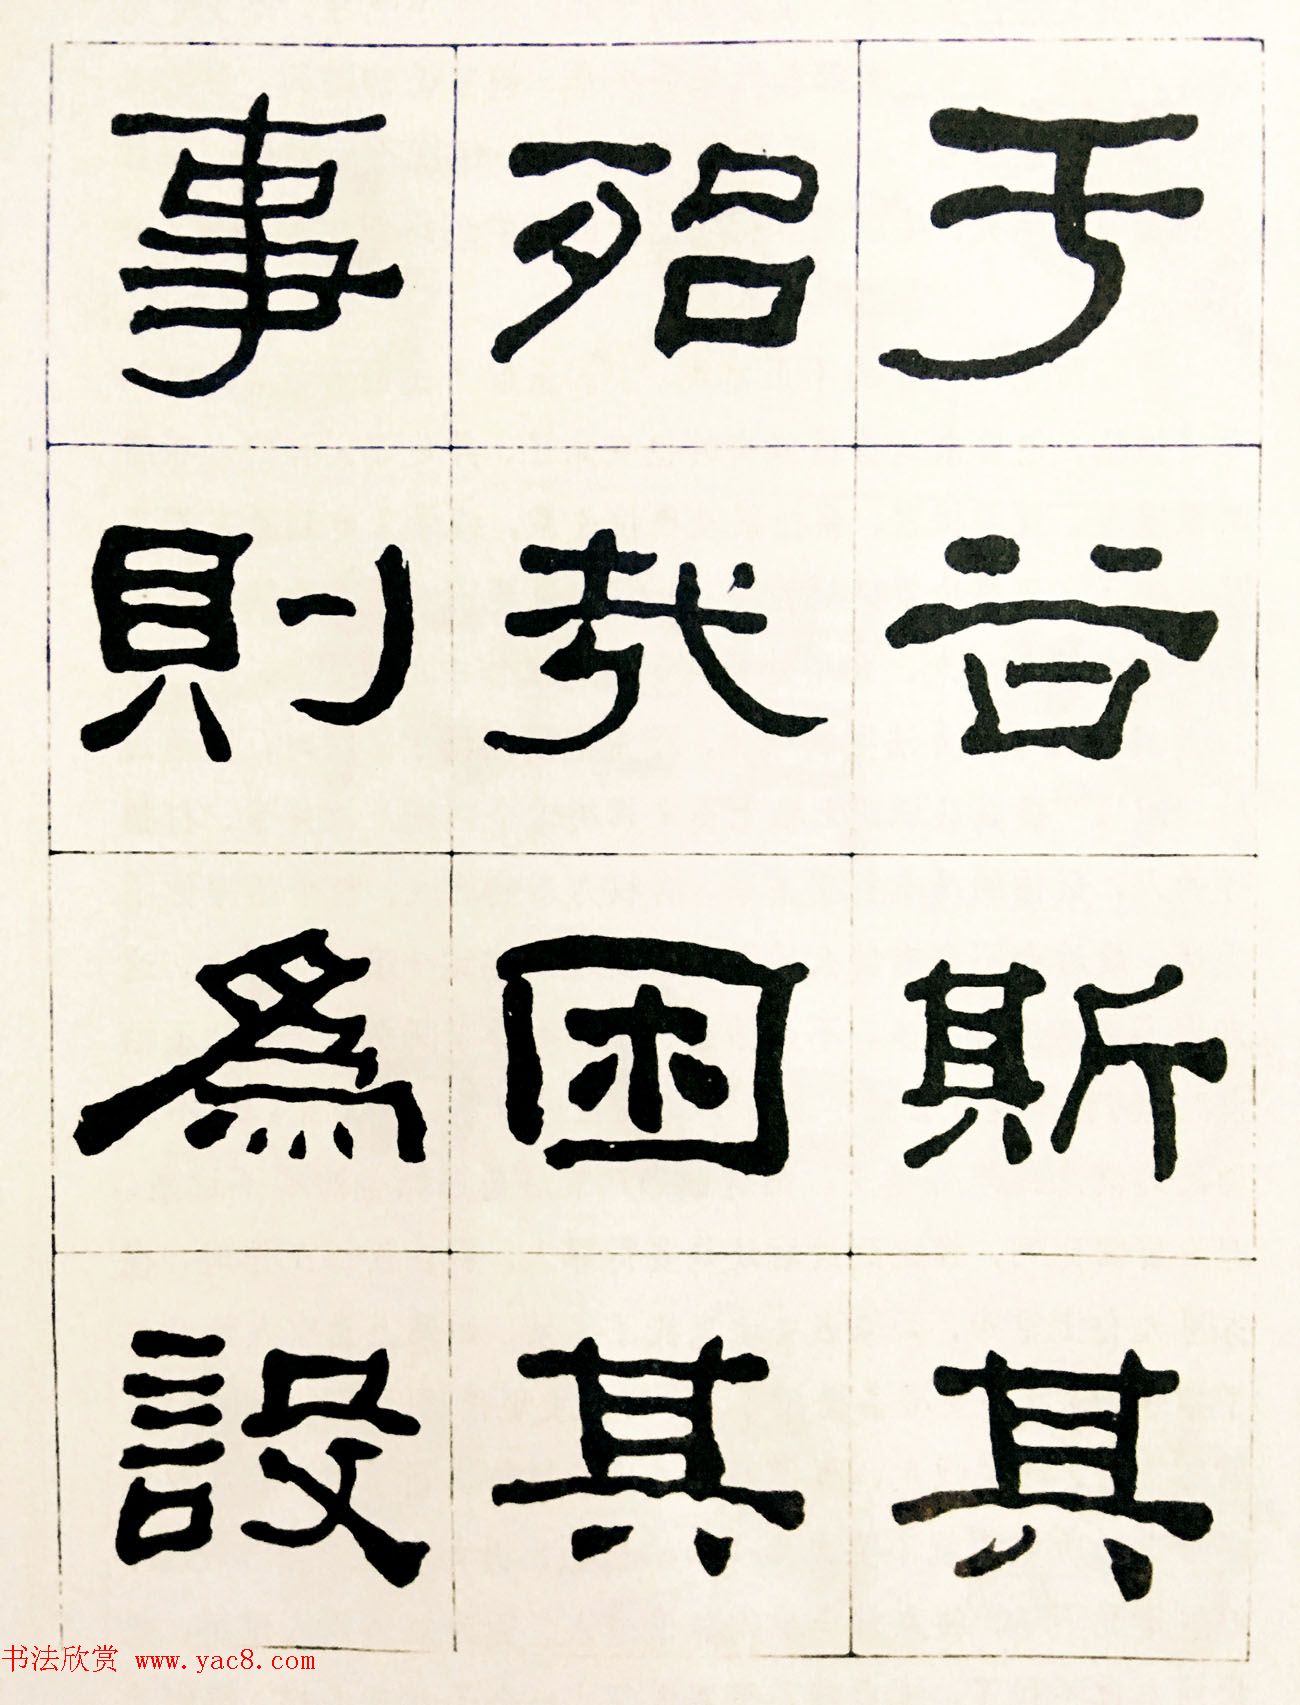 于谷斯其
殆哉困其
事則爲設
书法欣赏 www.yac8.com